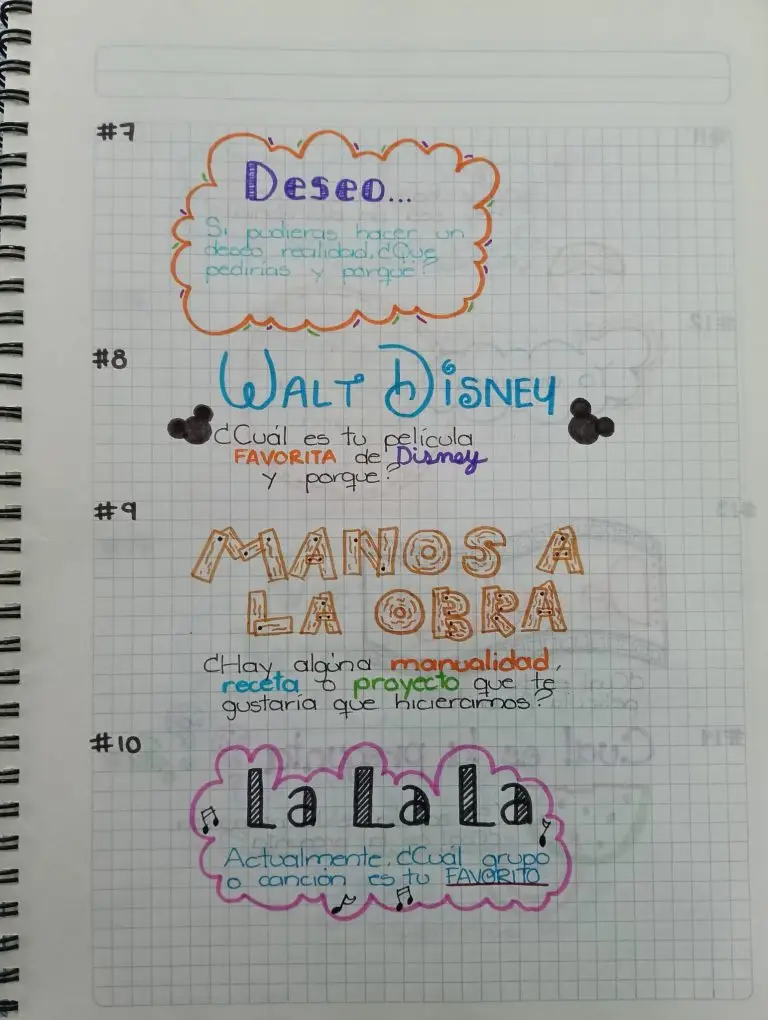 #7
Deseo...
Si pudieras hacer un
deseo realidad, ¿Que
pedirias y porque?
#8
WALT DISNEY
¿Cuál es tu película
FAVORITA de Disney
y porque?
#9
MANOS A
LA OBRA
¿Hay alguna manualidad,
receta o proyecto que te
gustaría que hicieramos?
#10
La La La
Actualmente, ¿Cuál grupo
o canción es tu FAVORITO